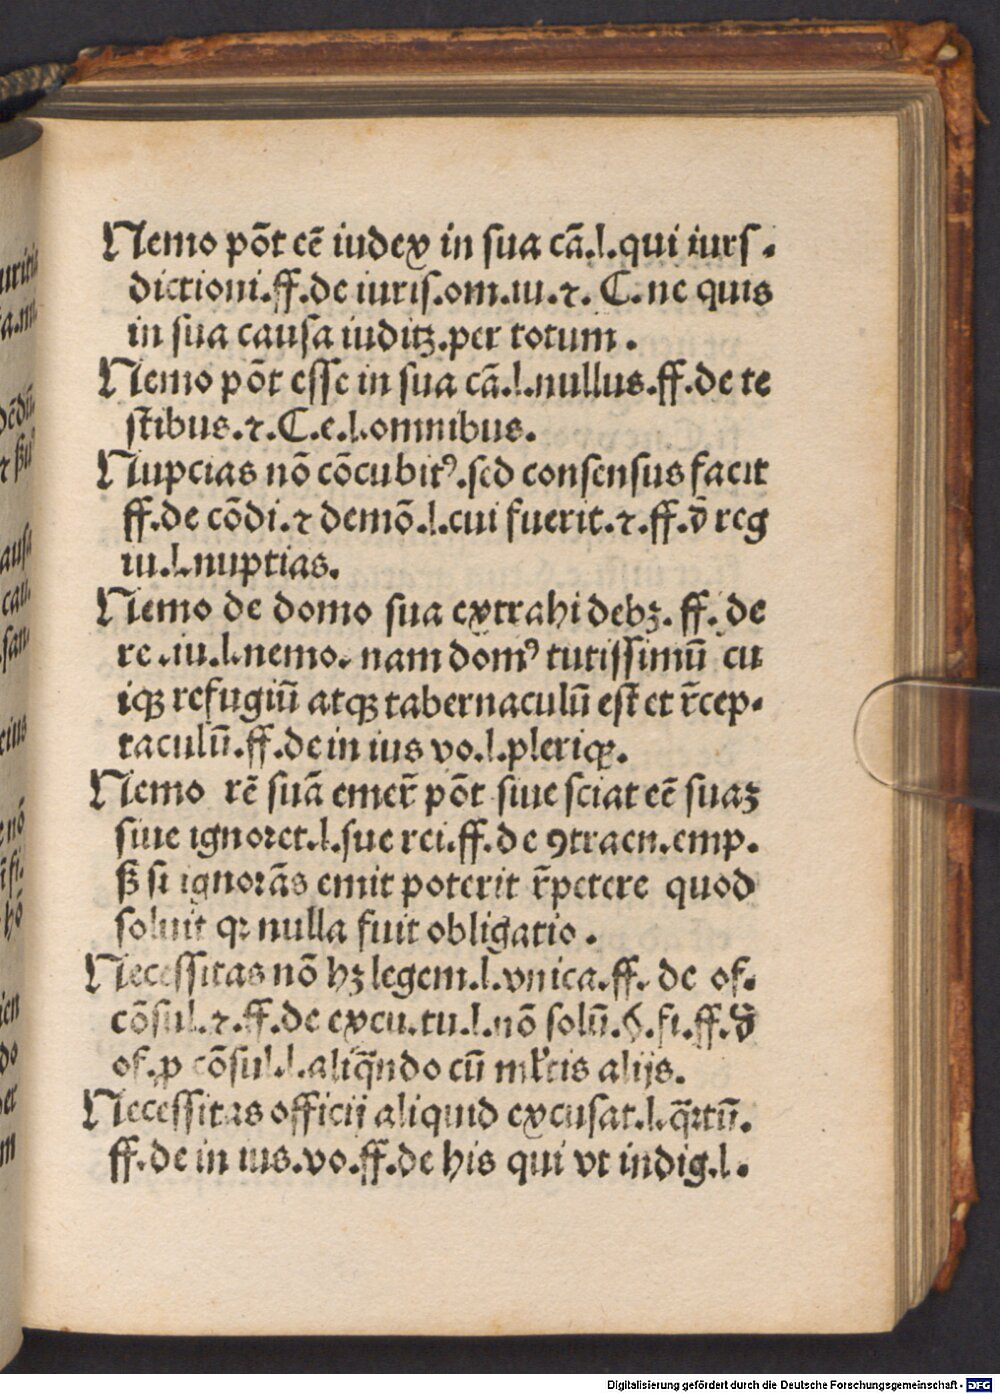 Nemo põt eē iudex in sua cā.l.qui iurſ.
dictioni.ff.de iuriſ.om.iu.⁊. C. ne quis
in ſua cauſa iuditꝫ.per totum.
Nemo põt eſſe in ſua cā.l.nullus.ff.de te
ſtibus.⁊.C.e.l.omnibus.
Nupcias nõ cõcubitꝰ.ſed conſenſus facit
ff.de cõdi.⁊ demõ.l.cui fuerit.⁊.ff.đ reg
iu.l.nuptias.
Nemo de domo ſua extrahi debꝫ. ff. de
re.iu.l.nemo. nam domꝰ tutiſſimū cu
iqꝫ refugiū atqꝫ tabernaculū eſt et r̄cep-
taculū.ff.de in ius vo.l.pleriqꝫ.
Nemo rē ſuā emer̄ põt ſiue ſciat eē ſuaꝫ
ſiue ignoꝛet.l.ſue rei.ff.de ꝯtraen.emp.
ß ſi ignoꝛās emit poterit r̄petere quod
ſoluit qꝛ nulla fuit obligatio.
Neceſſitas nõ hꝫ legem.l.vnica.ff. de of.
cõſul.⁊.ff.de excu.tu.l.nõ ſolū.§.fi.ff.đ
of.ꝓ cõſul.l.aliq̄ndo cū ml̄tis alijs.
Neceſſitas officij aliquid excuſat.l.q̄ꝛtū.
ff.de in ius.vo.ff.de his qui vt indig.l.
auſa
cau.
ſan
Digitalisierung gefördert durch die Deutsche Forschungsgemeinschaft - DFG